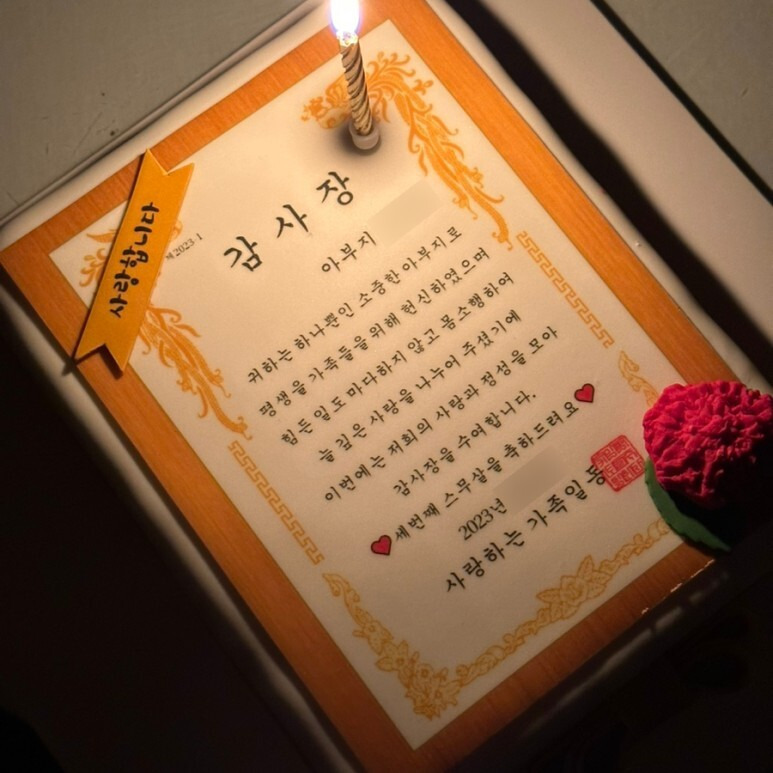 사랑합니다
제2023-1
감사장
아부지
귀하는 하나뿐인 소중한 아부지로
평생을 가족들을 위해 헌신하였으며
힘든 일도 마다하지 않고 몸소행하여
늘 깊은 사랑을 나누어 주셨기에
이번에는 저희의 사랑과 정성을 모아
감사장을 수여합니다.
세번째 스무살을 축하드려요
2023년
사랑하는 가족일동